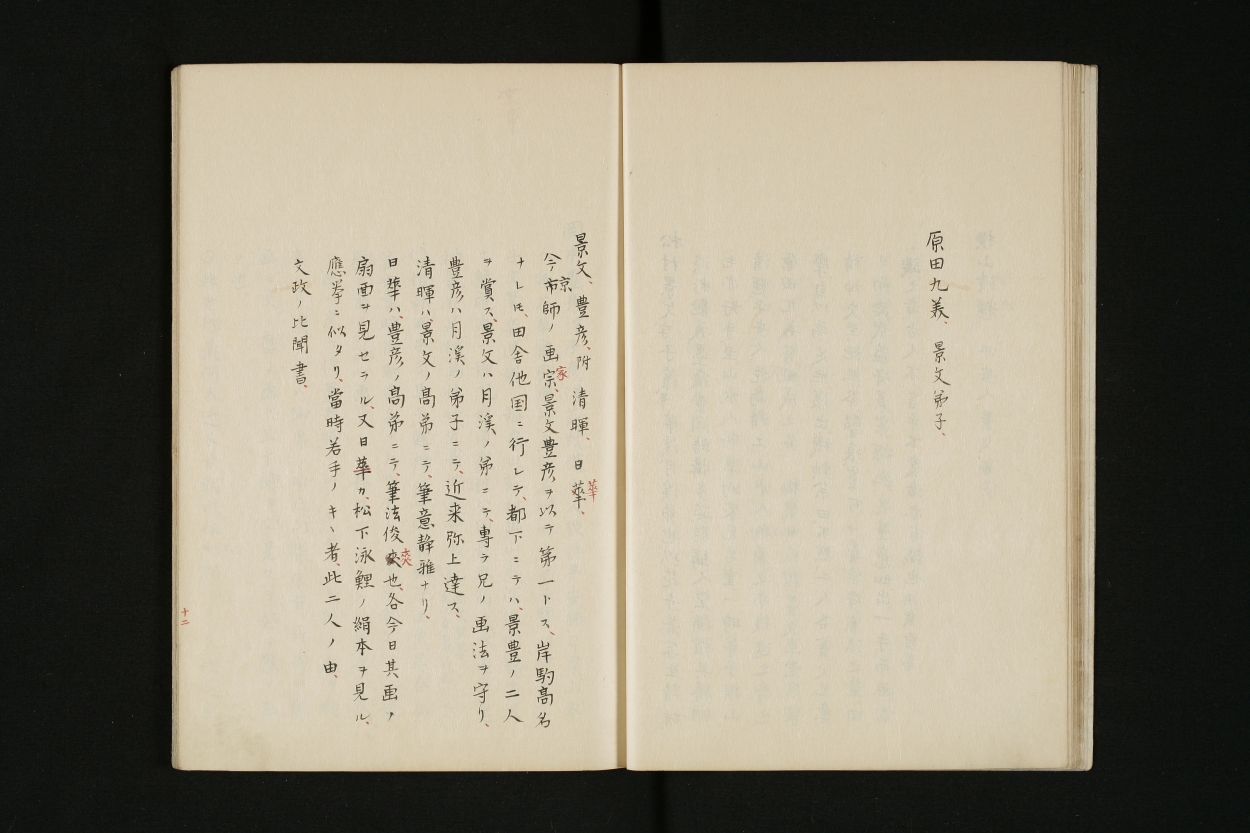 原田九義、景文弟子、
景文、豊彦、附 清暉、日華、
今京師ノ画家、景文豊彦ヲ以テ第一トス、岸駒高名
ナレ𪜈、田舎他国ニ行レテ、都下ニテハ、景豊ノ二人
ヲ賞ス、景文ハ月溪ノ弟ニテ、専ラ兄ノ画法ヲ守リ、
豊彦ハ月溪ノ弟子ニテ、近来弥上達ス、
清暉ハ、景文ノ高弟ニテ、筆意静雅ナリ、
日華ハ、豊彦ノ高弟ニテ、筆法俊爽也、各今日其画ノ
扇面ヲ見セラル、又日華カ、松下泳鯉ノ絹本ヲ見ル、
應挙ニ似タリ、當時若手ノキヽ者、此二人ノ由、
文政ノ比聞書、
十二